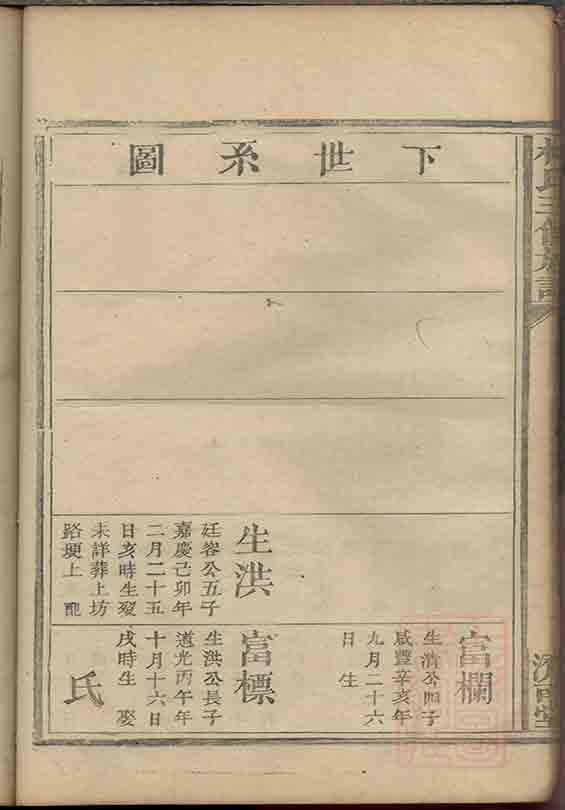 下世系圖
生洪
廷容公五子
嘉慶己卯年
二月二十五
日亥時生歿
未詳葬上坊
路
土
富欄
生清公四子
咸豐辛亥年
九月二十六
日生
富標
生洪公長子
道光丙午年
十月十六日
戌時生 娶
氏
氏三修族譜
堂